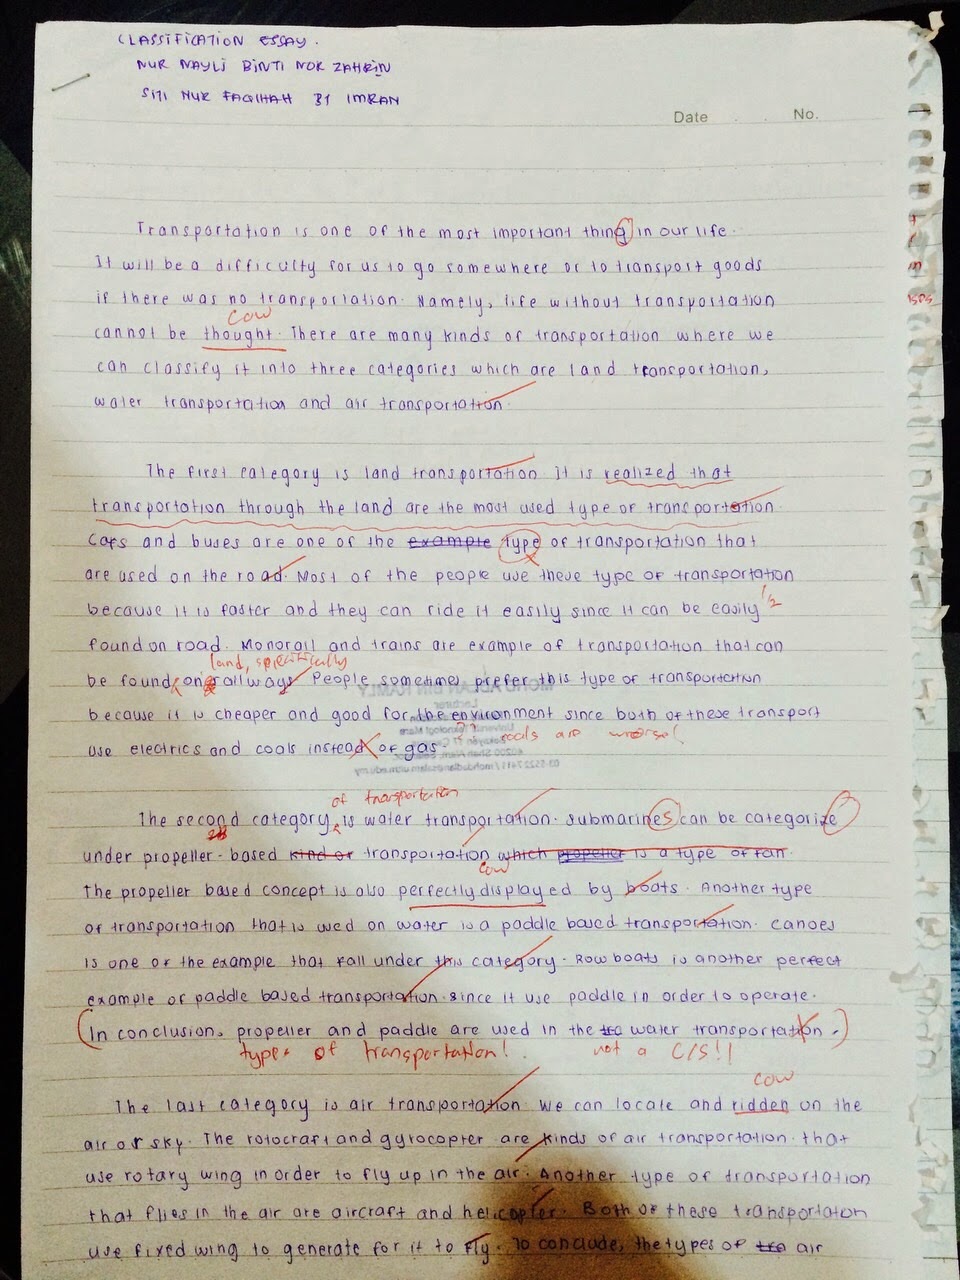 CLASSIFICATION ESSAY.
NUR NAYLI BINTI NOR ZAHRIN
SITI NUR FAQIHAH BT IMRAN
Date No.
Transportation is one of the most important thing in our life.
It will be a difficulty for us to go somewhere or to transport goods
if there was no transportation. Namely, life without transportation
cow
cannot be thought. There are many kinds of transportation where we
can classify it into three categories which are land transportation,
water transportation and air transportation.
The first category is land transportation. It is realized that
transportation through the land are the most used type of transportation.
Cars and buses are one of the example type of transportation that
are used on the road. Most of the people use these type of transportation
because it is faster and they can ride it easily since it can be easily
found on road. Monorail and trains are example of transportation that can
land, specifically
be found on railways. People sometimes prefer this type of transportation
because it is cheaper and good for the environment since both of these transport
?? coals are worse!
use electrics and coals instead of gas.
of transportation
The second category is water transportation. Submarines can be categorize
under propeller-based kind of transportation which propeller is a type of fan.
cow
The propeller based concept is also perfectly displayed by boats. Another type
of transportation that is used on water is a paddle based transportation. Canoes
is one of the example that fall under this category. Row boats is another perfect
example of paddle based transportation. Since it use paddle in order to operate.
(In conclusion, propeller and paddle are used in the tra water transportation.)
types of transportation! not a C/S!!
cow
The last category is air transportation. We can locate and ridden on the
air or sky. The rotocraft and gyrocopter are kinds of air transportation that
use rotary wing in order to fly up in the air. Another type of transportation
that flies in the air are aircraft and helicopter. Both of these transportaton
use fixed wing to generate for it to fly. To conclude, the types of tra air